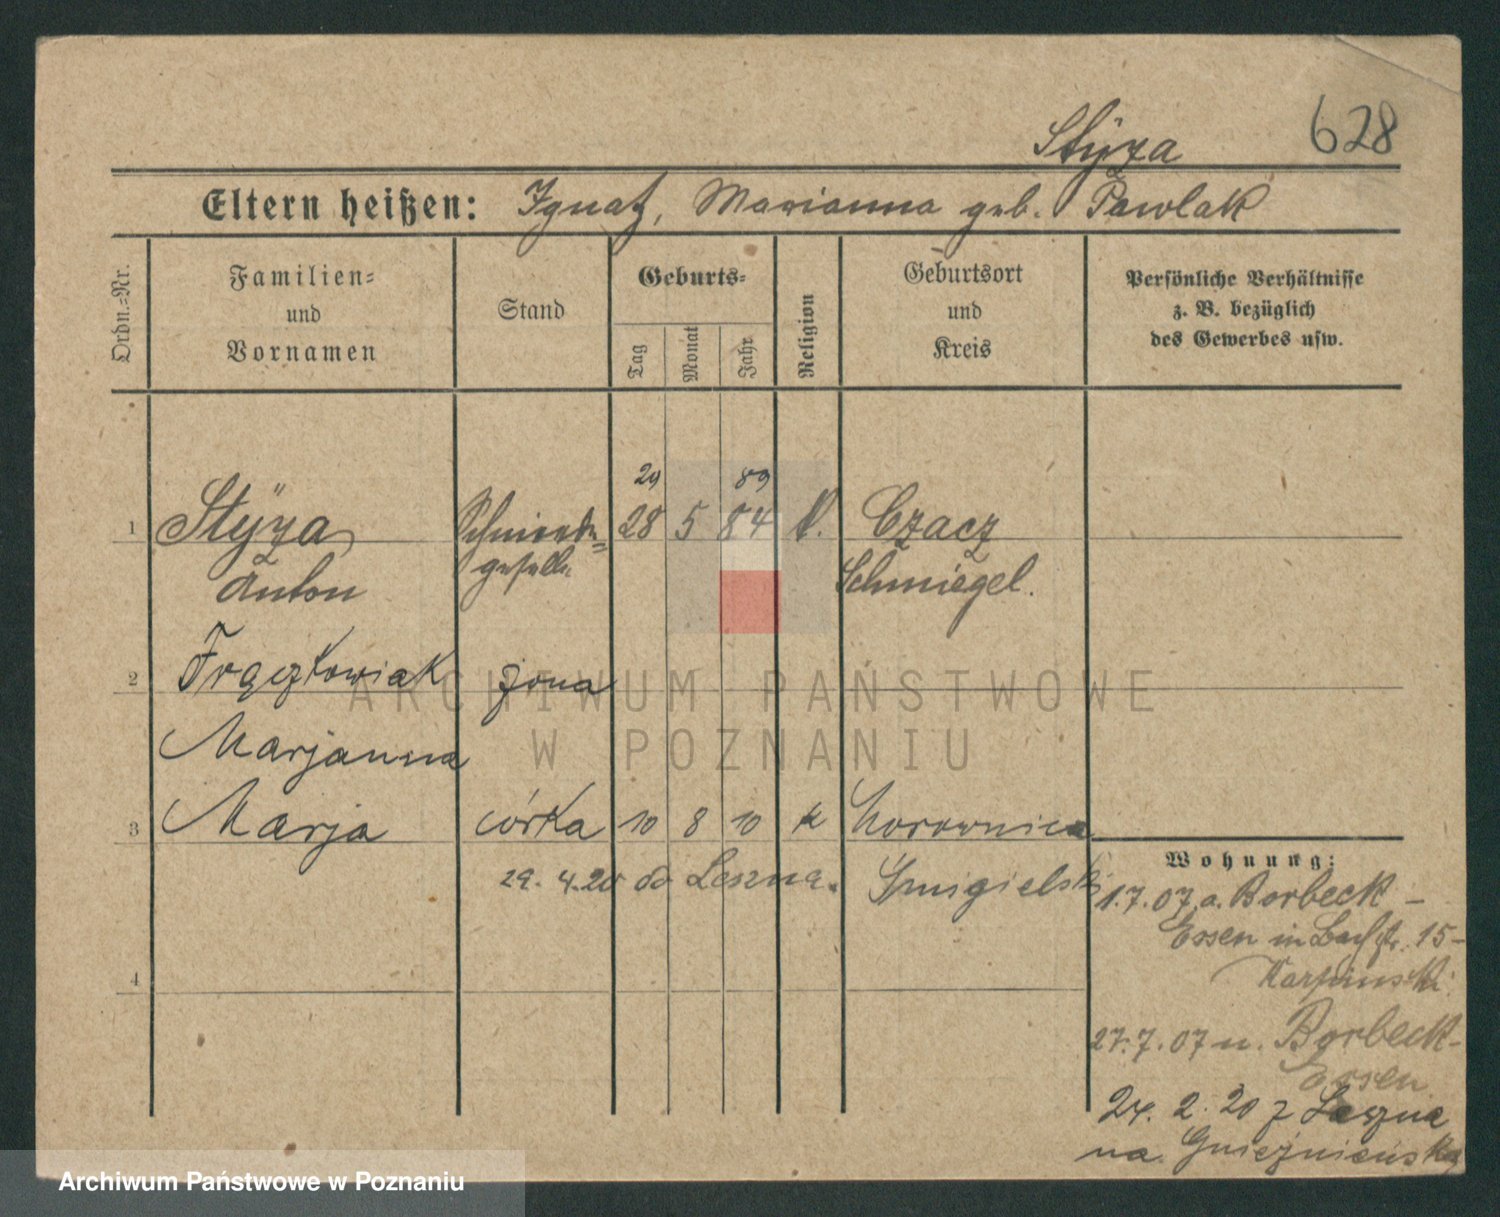 Styza 628
Eltern heißen: Ignatz, Marianna geb. Pawlak
Ordn.-Nr.
Familien-
und
Vornamen
Stand
Geburts-
Tag
Monat
Jahr
Religion
Geburtsort
und
Kreis
Persönliche Verhältnisse
z. B. bezüglich
des Gewerbes usw.
29 89
1 Styza Schmiede- 28 5 84 k. Czacz
Anton geselle Schmiegel.
2 Frąckowiak żona
Marjanna
3 Marja córka 10 8 10 k
29. 4. 20 do Leszna. Śmigielski
4
Wohnung:
1.7.07. a. Borbeck -
Essen in 15-
Karpinski
27.7.07 n. Borbeck-
Essen
24. 2. 20 z Leszna
na. Gnieźnieńska
ARCHIWUM PAŃSTWOWE
W POZNANIU
Archiwum Państwowe w Poznaniu